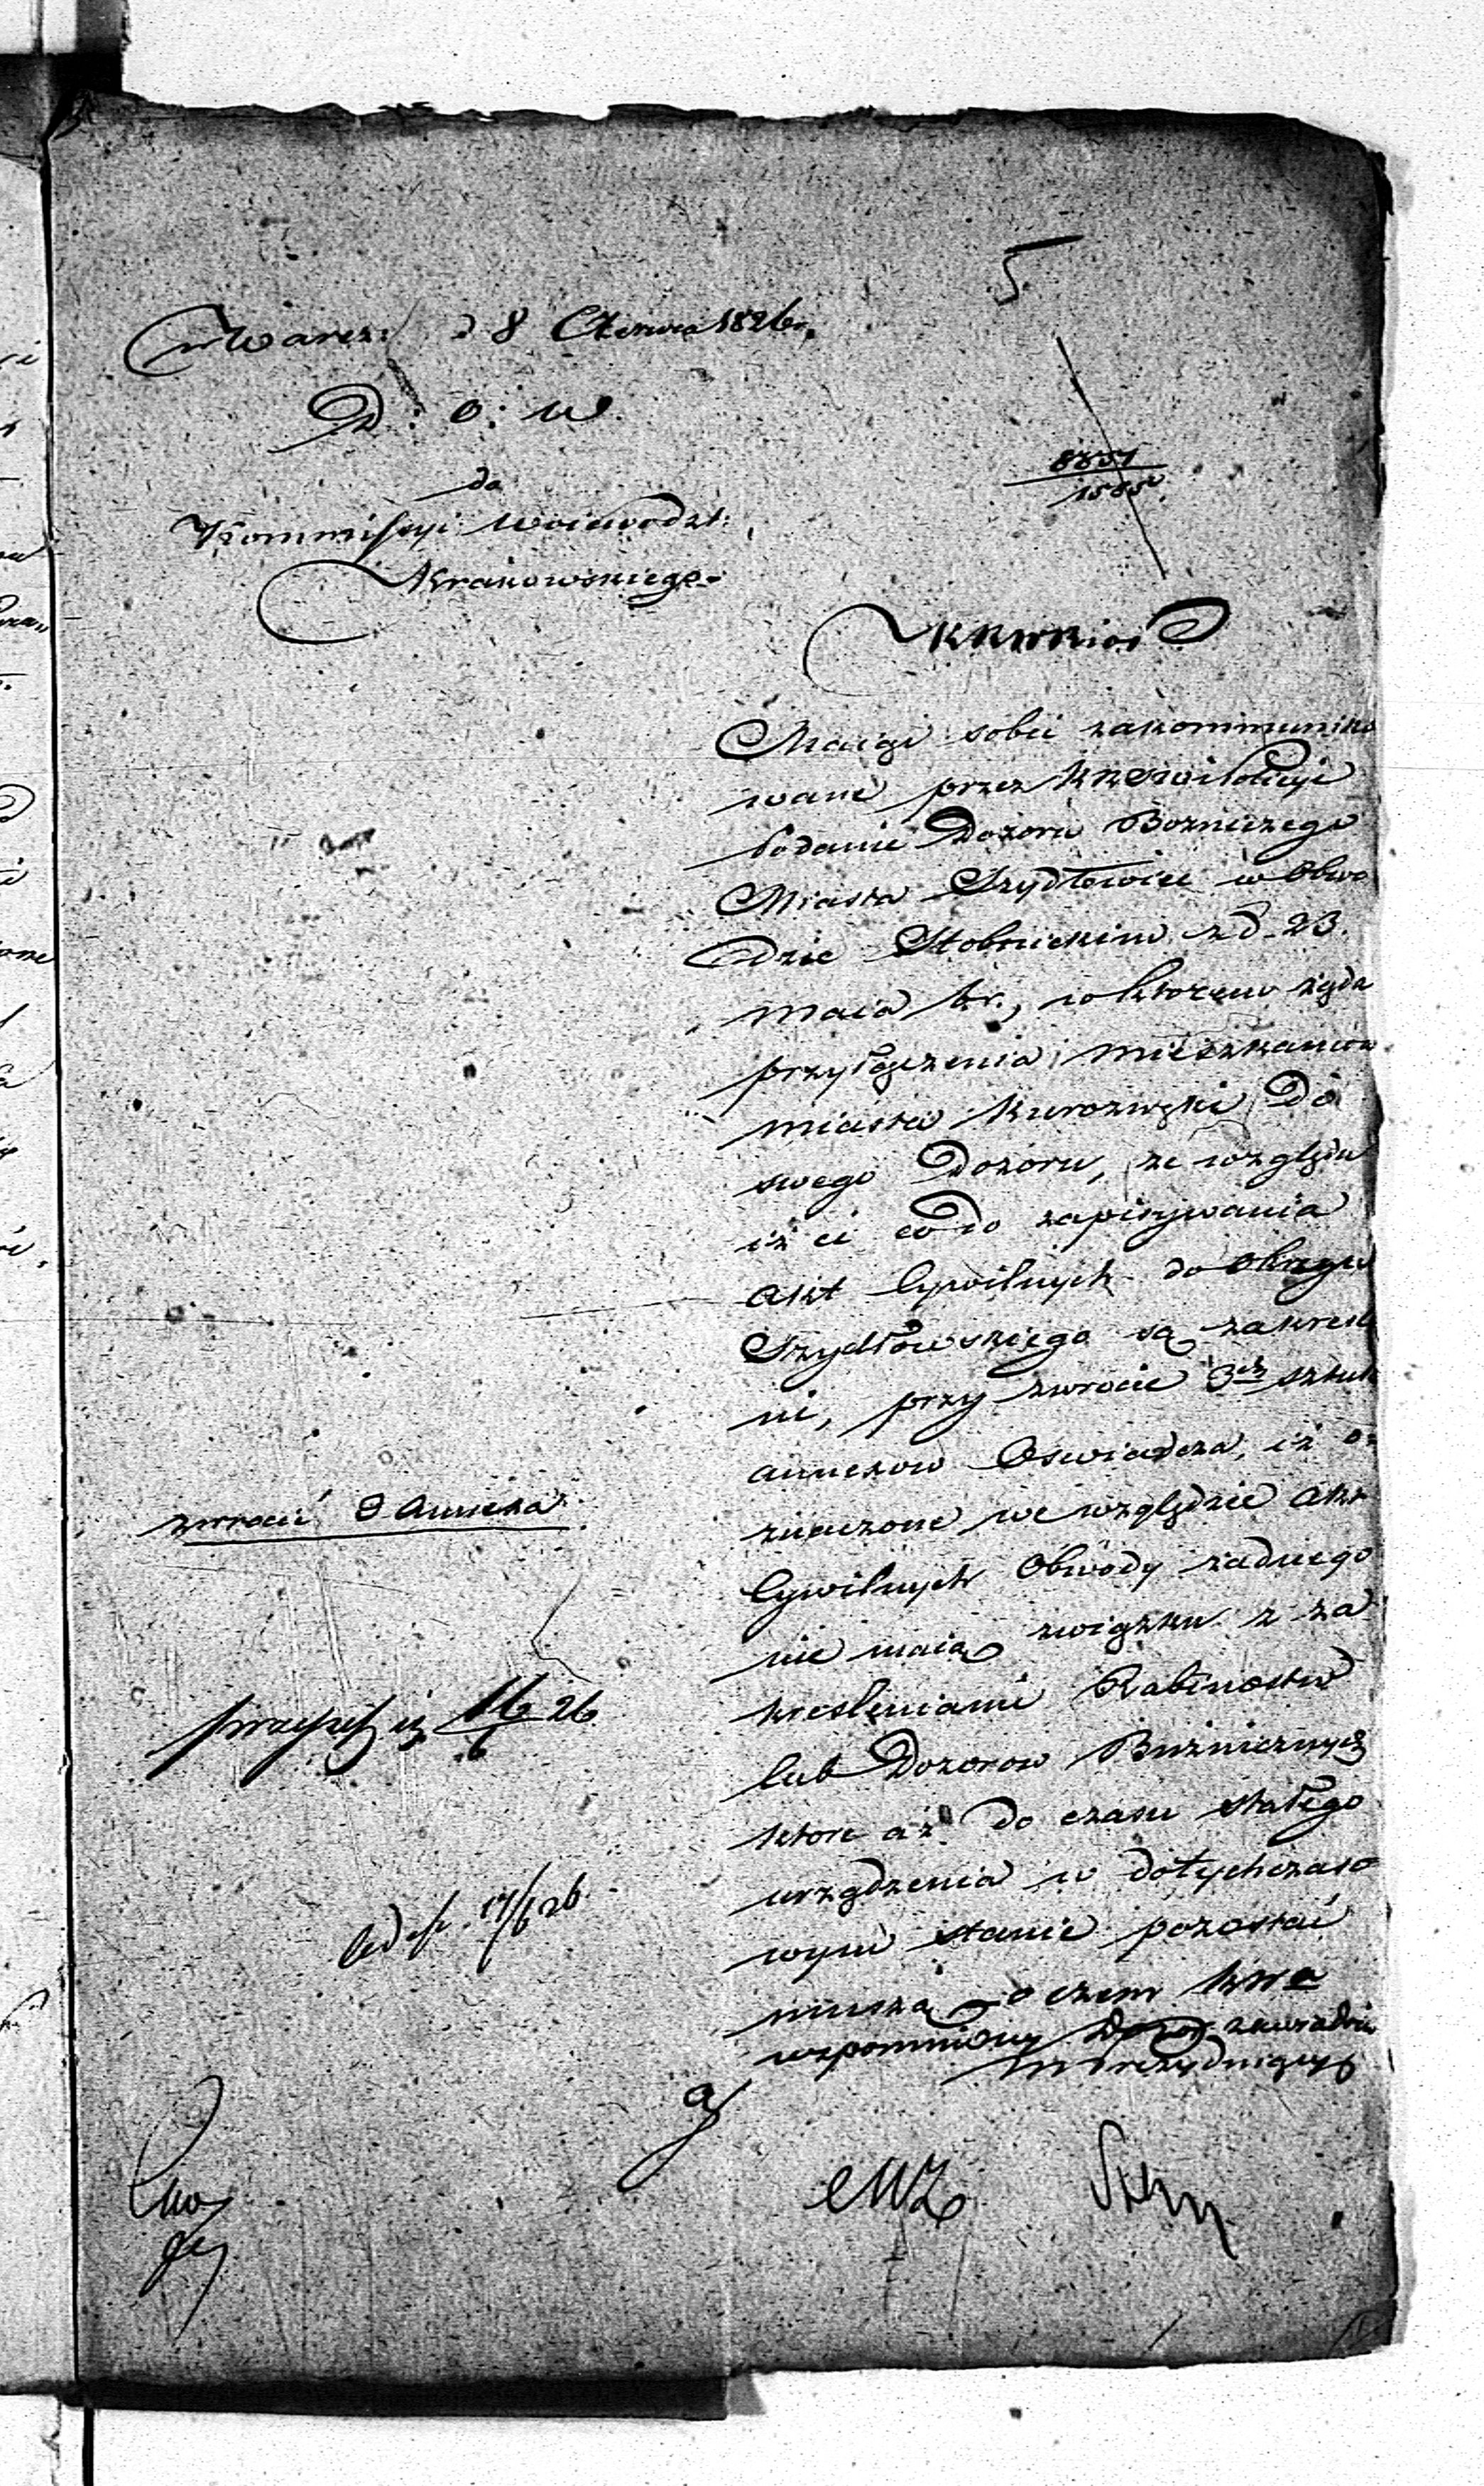 5.
w Warsz: d 8 Czerwca 1826.
D: O: W
8851
1585
do
Kommissyi Woiewodzt:
Krakowskiego
KRWRiOP
Maiąc sobie zakommuniko
wane przez KRSWiPolicyi
Podanie Dozoru Bożniczego
Miasta Szydłowiec w Obwo
dzie Stobnickim z d. 23.
maia br., w ktorem żąda
przyłączenia mieszkancow
miasta Kurozwęki do
swego Dozoru, ze względu
iż ci co do zapisywania
Akt Cywilnych do Okręgu
Szydłowskiego są zakreśle
ni, przy zwrocie 3ch sztuk
annexow Oświadcza, iż o-
znaczone we względzie Akt
Cywilnych Obwody żadnego
nie maią związku z za
kreśleniami Rabinostw
lub Dozorow Bużniczych
ktore aż do czasu stałego
urządzenia w dotychczaso
wym stanie pozostać
muszą o czem KWa
wspomniony Dozor zawiadomi
M Prezyduiący
zwrocić 3 Annexa
przepisz 16/6 26
Ad exp. 17/6 26